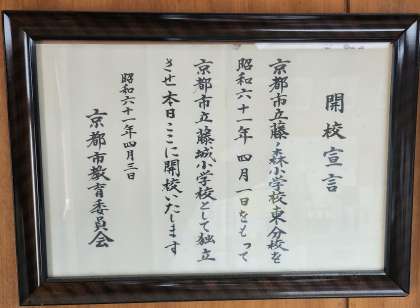 開校宣言
京都市立藤ノ森小学校東分校を
昭和六十一年四月一日をもって
京都市立藤城小学校として独立
させ本日ここに開校いたします
昭和六十一年四月三日
京都市教育委員会